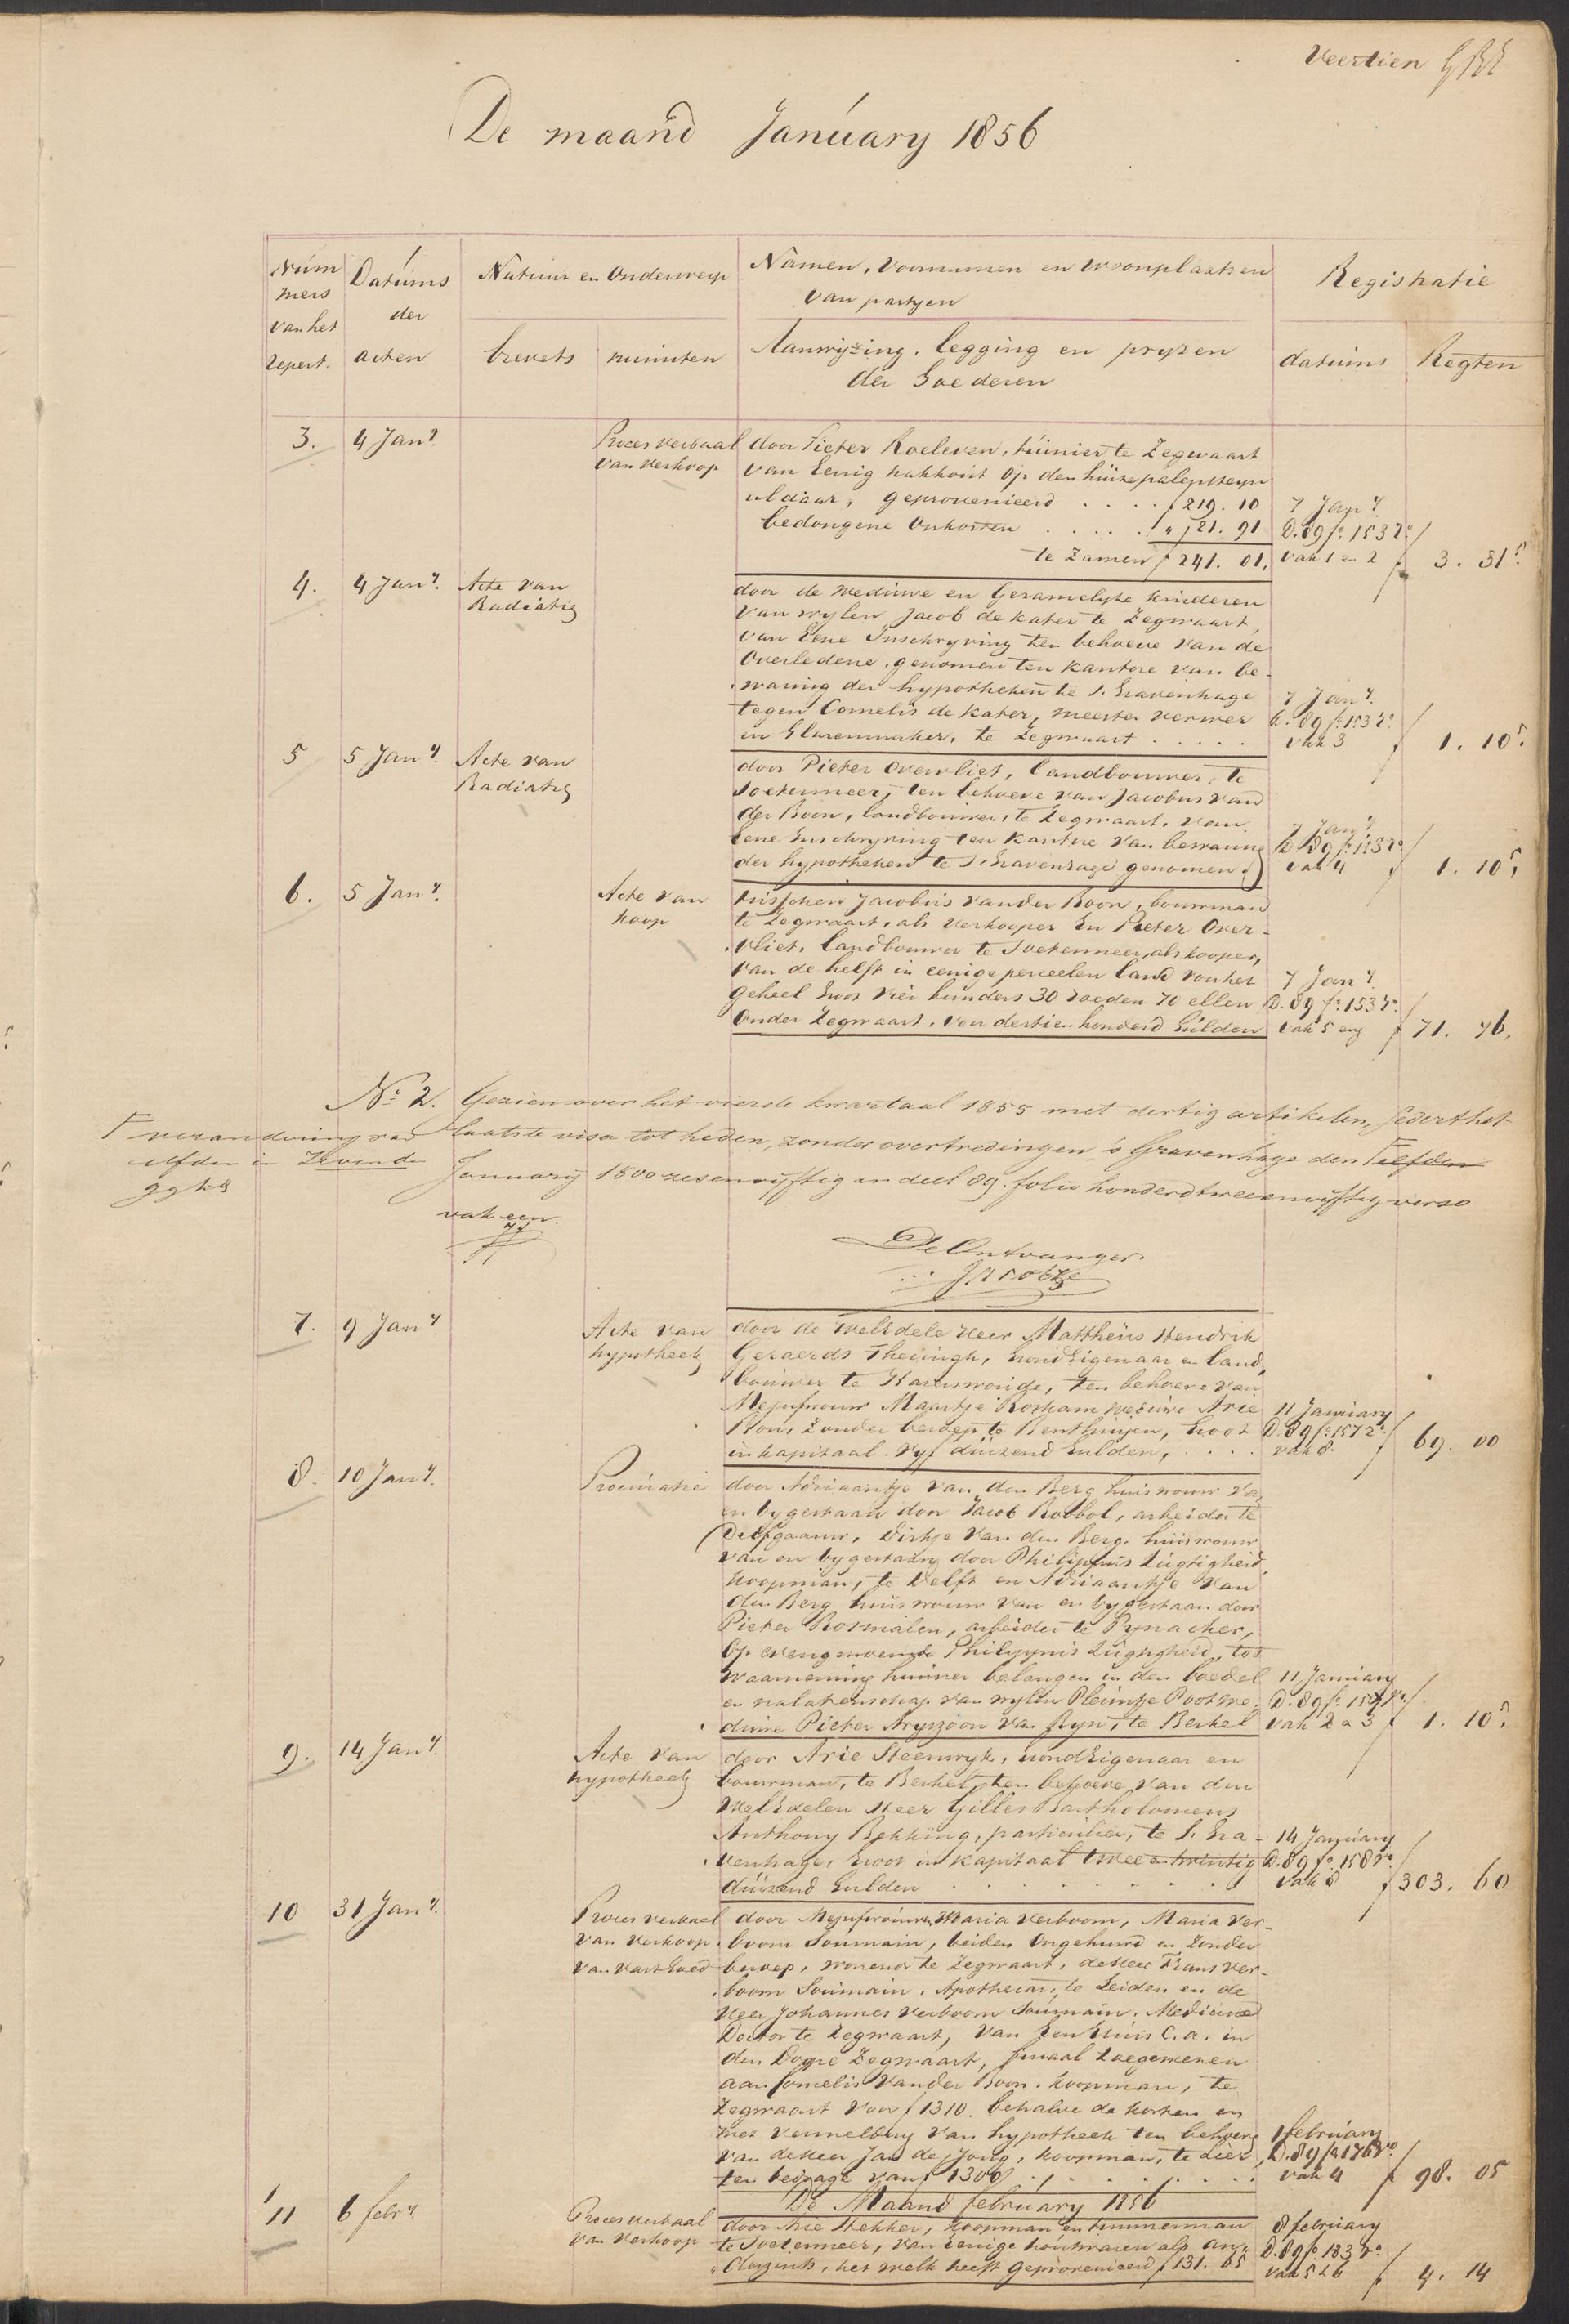 Veertien
De maand January 1856
Num
mers
van het
repert.
Datums
der
acten
Natuur en Onderwerp
brevets
minuten
Namen, Voornamen en woonplaatsen
van partyen
Aanwyzing, legging en pryzen
der Goederen
Registratie
datums
Regten
3.
4 Jany.
Proces verbaal
van Verkoop
door Pieter Roeleven, tuinier te Zegwaart
van Eenig hakhout op den huize palensteyn
aldaar, geprovenieerd . . . . f 219. 10
bedongene Onkosten . . . . . " 21. 91
te Zamen f 241. 01.
7 Jany.
D. 89 fo. 153 ro.
vak 1 en 2
f 3. 31 5.
4.
4 Jany.
Acte van
Radiatie
door de weduwe en Gezamelyke kinderen
van wylen Jacob de Kater te Zegwaart,
van Eene Inschryving ten behoeve van de
Overledene, genomen ten kantore van be-
waring der hypotheken te s. Gravenhage
tegen Cornelis de Kater, meester verwer
en Glazenmaker, te Zegwaart . . . . .
7 Jany.
D. 89 fo. 153 ro.
vak 3
f 1. 10 5.
5
5 Jany.
Acte van
Radiatie
door Pieter Overvliet, landbouwer, te
Soetermeer, ten behoeve van Jacobus van
der Boon, landbouwer, te Zegwaart, van
Eene Inschryving ten kantore van bewaring
der hypotheken te s. Gravenhage genomen.
7 Jany.
D. 89 fo. 153 ro.
vak 4
f 1. 10 5.
6.
5 Jany.
Acte van
koop
tusschen Jacobus van der Boon, bouwman
te Zegwaart, als verkooper En Pieter Over-
vliet, landbouwer te Soetermeer, als kooper,
van de helft in eenige perceelen land van het
geheel Groot vier bunders 30 roeden 70 ellen
Onder Zegwaart, voor dertien honderd Gulden
7 Jany.
D. 89 fo. 153 ro.
vak 5 en
f 71. 76.
No. 2. Gezien over het vierde kwartaal 1855 met dertig artikelen, sedert het
laatste visa tot heden, zonder overtredingen 's Gravenhage den elfden
January 1800 zesenvyftig in deel 89. folio honderd tweeenvyftig verso
vak een.
verandering van
elfden in Zevende
De Ontvanger
7.
9 Jany.
Acte van
hypotheek
door de WelEdele Heer Mattheus Hendrik
Geraerds Thesingh, Grond Eigenaar en land
bouwer te Hazerswoude, ten behoeve van
Mejufvrouw Maartje Roskam weduwe Arie
Bon, Zonder beroep te Benthuizen, Groot
in kapitaal vyf duizend Gulden, . . . .
11 January
D. 89 fo. 157 ro.
vak 8.
f 69. 00
8.
10 Jany.
Procuratie
door Adriaantje van den Berg huisvrouw van
en bygestaan door Jacob Robbol, arbeider te
Delfgaauw, Dirkje van den Berg, huisvrouw
van en bygestaan door Philippus Lugtigheid,
koopman, te Delft en Adriaantje van
den Berg huisvrouw van en bygestaan door
Pieter Rosmalen, arbeider te Pynacker,
Op evengenoemde Philippus Lugtigheid, tot
waarneming hunner belangen in den boedel
en nalatenschap van wylen Pleuntje Poot we-
duwe Pieter Aryszoon van Ryn, te Berkel
11 January
D. 89 fo.
vak 2 a 3
f 1. 10 5.
9.
14 Jany.
Acte van
hypotheek
door Arie Steenwyk, Grond Eigenaar en
bouwman, te Berkel, ten behoeve van den
WelEdelen Heer Gilles Bartholomeus
Anthony Bekking, particulier, te s. Gra-
venhage, Groot in kapitaal twee en twintig
duizend Gulden . . . . . . . .
14 January
D. 89 fo. 158 ro.
vak 8
f 303. 60
10
31 Jany.
Proces verbaal
van Verkoop
van Vast Goed
door Mejufvrouwen Maria Verboom, Maria Ver-
boom Soumain, beiden Ongehuwd en Zonder
beroep, wonende te Zegwaart, de Heer Frans Ver-
boom Soumain, Apothecar, te Leiden en de
Heer Johannes Verboom Soumain, Medicinae
Doctor te Zegwaart, van Een Huis C.a. in
den Dorpe Zegwaart, finaal toegewezen
aan Cornelis van der Boon, koopman, te
Zegwaart voor f 1310. behalve de kosten en
met vermelding van hypotheek ten behoeve
van de Heer Jan de Jong, koopman, te Lier,
ten bedrage van f 1300 . . . . . .
1 february
D. 89 fo. 176 vo.
vak 4
f 98. 05
De Maand february 1856
11
6 febry.
Proces verbaal
van Verkoop
door Arie Hekker, koopman en timmerman
te Soetermeer, van Eenige houtwaren als an-
derzints, het welk heeft geprovenieerd f 131. 65
8 february
D. 89 fo. 183 ro.
vak 5 & 6
f 4. 14